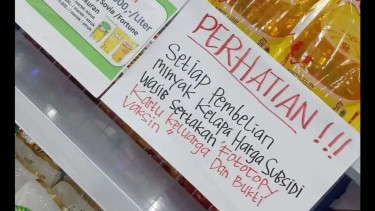 00,/Liter
Sovia/Fortune
PERHATIAN!!!
Setiap Pembelian
minyak Kelapa Harga Subsidi
Wajib Sertakan "Fotocopy
Kartu Keluarga Dan Bukti
Vaksin"